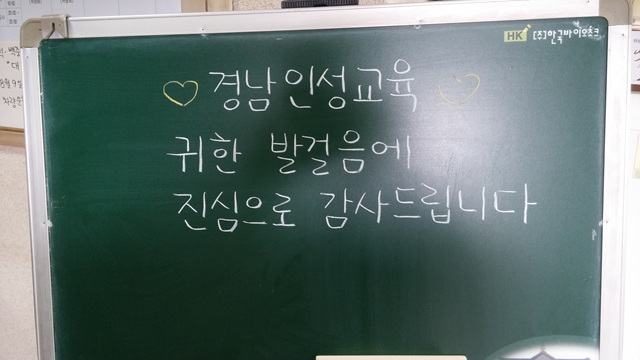 HK [주]한국바이오쵸크
♡ 경남인성교육 ♡
귀한 발걸음에
진심으로 감사드립니다
8월 9일